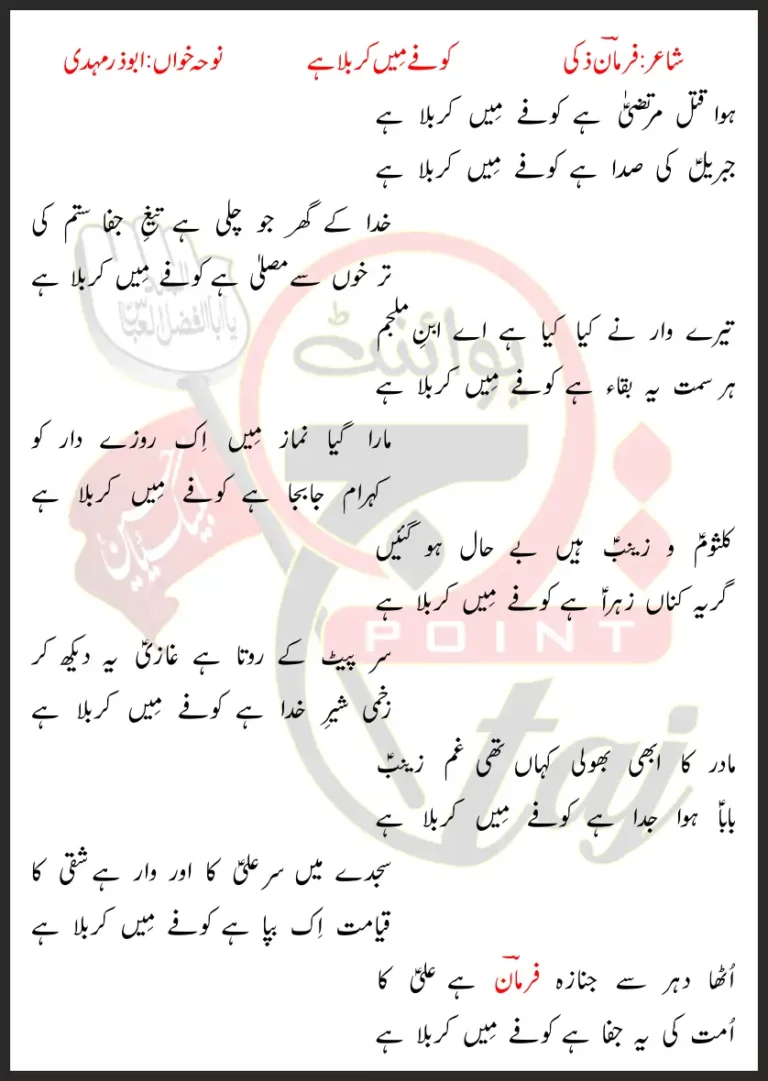 شاعر:فرمانؔ ذکی کوفے مِیں کربلا ہے نوحہ خواں:ابوذر مہدی
ہوا قتل مرتضیٰؑ ہے کوفے مِیں کربلا ہے
جبریلؑ کی صدا ہے کوفے مِیں کربلا ہے
خدا کے گھر جو چلی ہے تیغِ جفا ستم کی
تر خوں سے مصلیٰ ہے کوفے مِیں کربلا ہے
تیرے وار نے کیا کیا ہے اے ابنِ ملجم
ہر سمت یہ بقاء ہے کوفے مِیں کربلا ہے
مارا گیا نماز مِیں اِک روزے دار کو
کہرام جابجا ہے کوفے مِیں کربلا ہے
کلثومؑ و زینبؑ ہیں بے حال ہو گئیں
گریہ کناں زہراؑ ہے کوفے مِیں کربلا ہے
سر پیٹ کے روتا ہے غازیؑ یہ دیکھ کر
زخمی شیرِ خدا ہے کوفے مِیں کربلا ہے
مادر کا ابھی بھولی کہاں تھی غم زینبؑ
باباؑ ہوا جدا ہے کوفے مِیں کربلا ہے
سجدے میں سر علیؑ کا اور وار ہے شقی کا
قیامت اِک بپا ہے کوفے مِیں کربلا ہے
اُٹھا دہر سے جنازہ فرمانؔ ہے علیؑ کا
اُمت کی یہ جفا ہے کوفے مِیں کربلا ہے
یا ابا الفضل العباس
لبیک یا حسین
پوائنٹ
POINT
taj